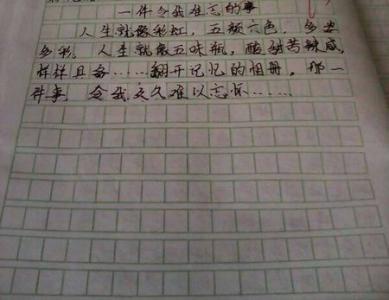 一件令我难忘的事
人生就像彩虹，五颜六色，多姿
多彩。人生就像五味瓶，酸甜苦辣咸，
样样具备……翻开记忆的相册，那一
件事，令我久久难以忘怀……